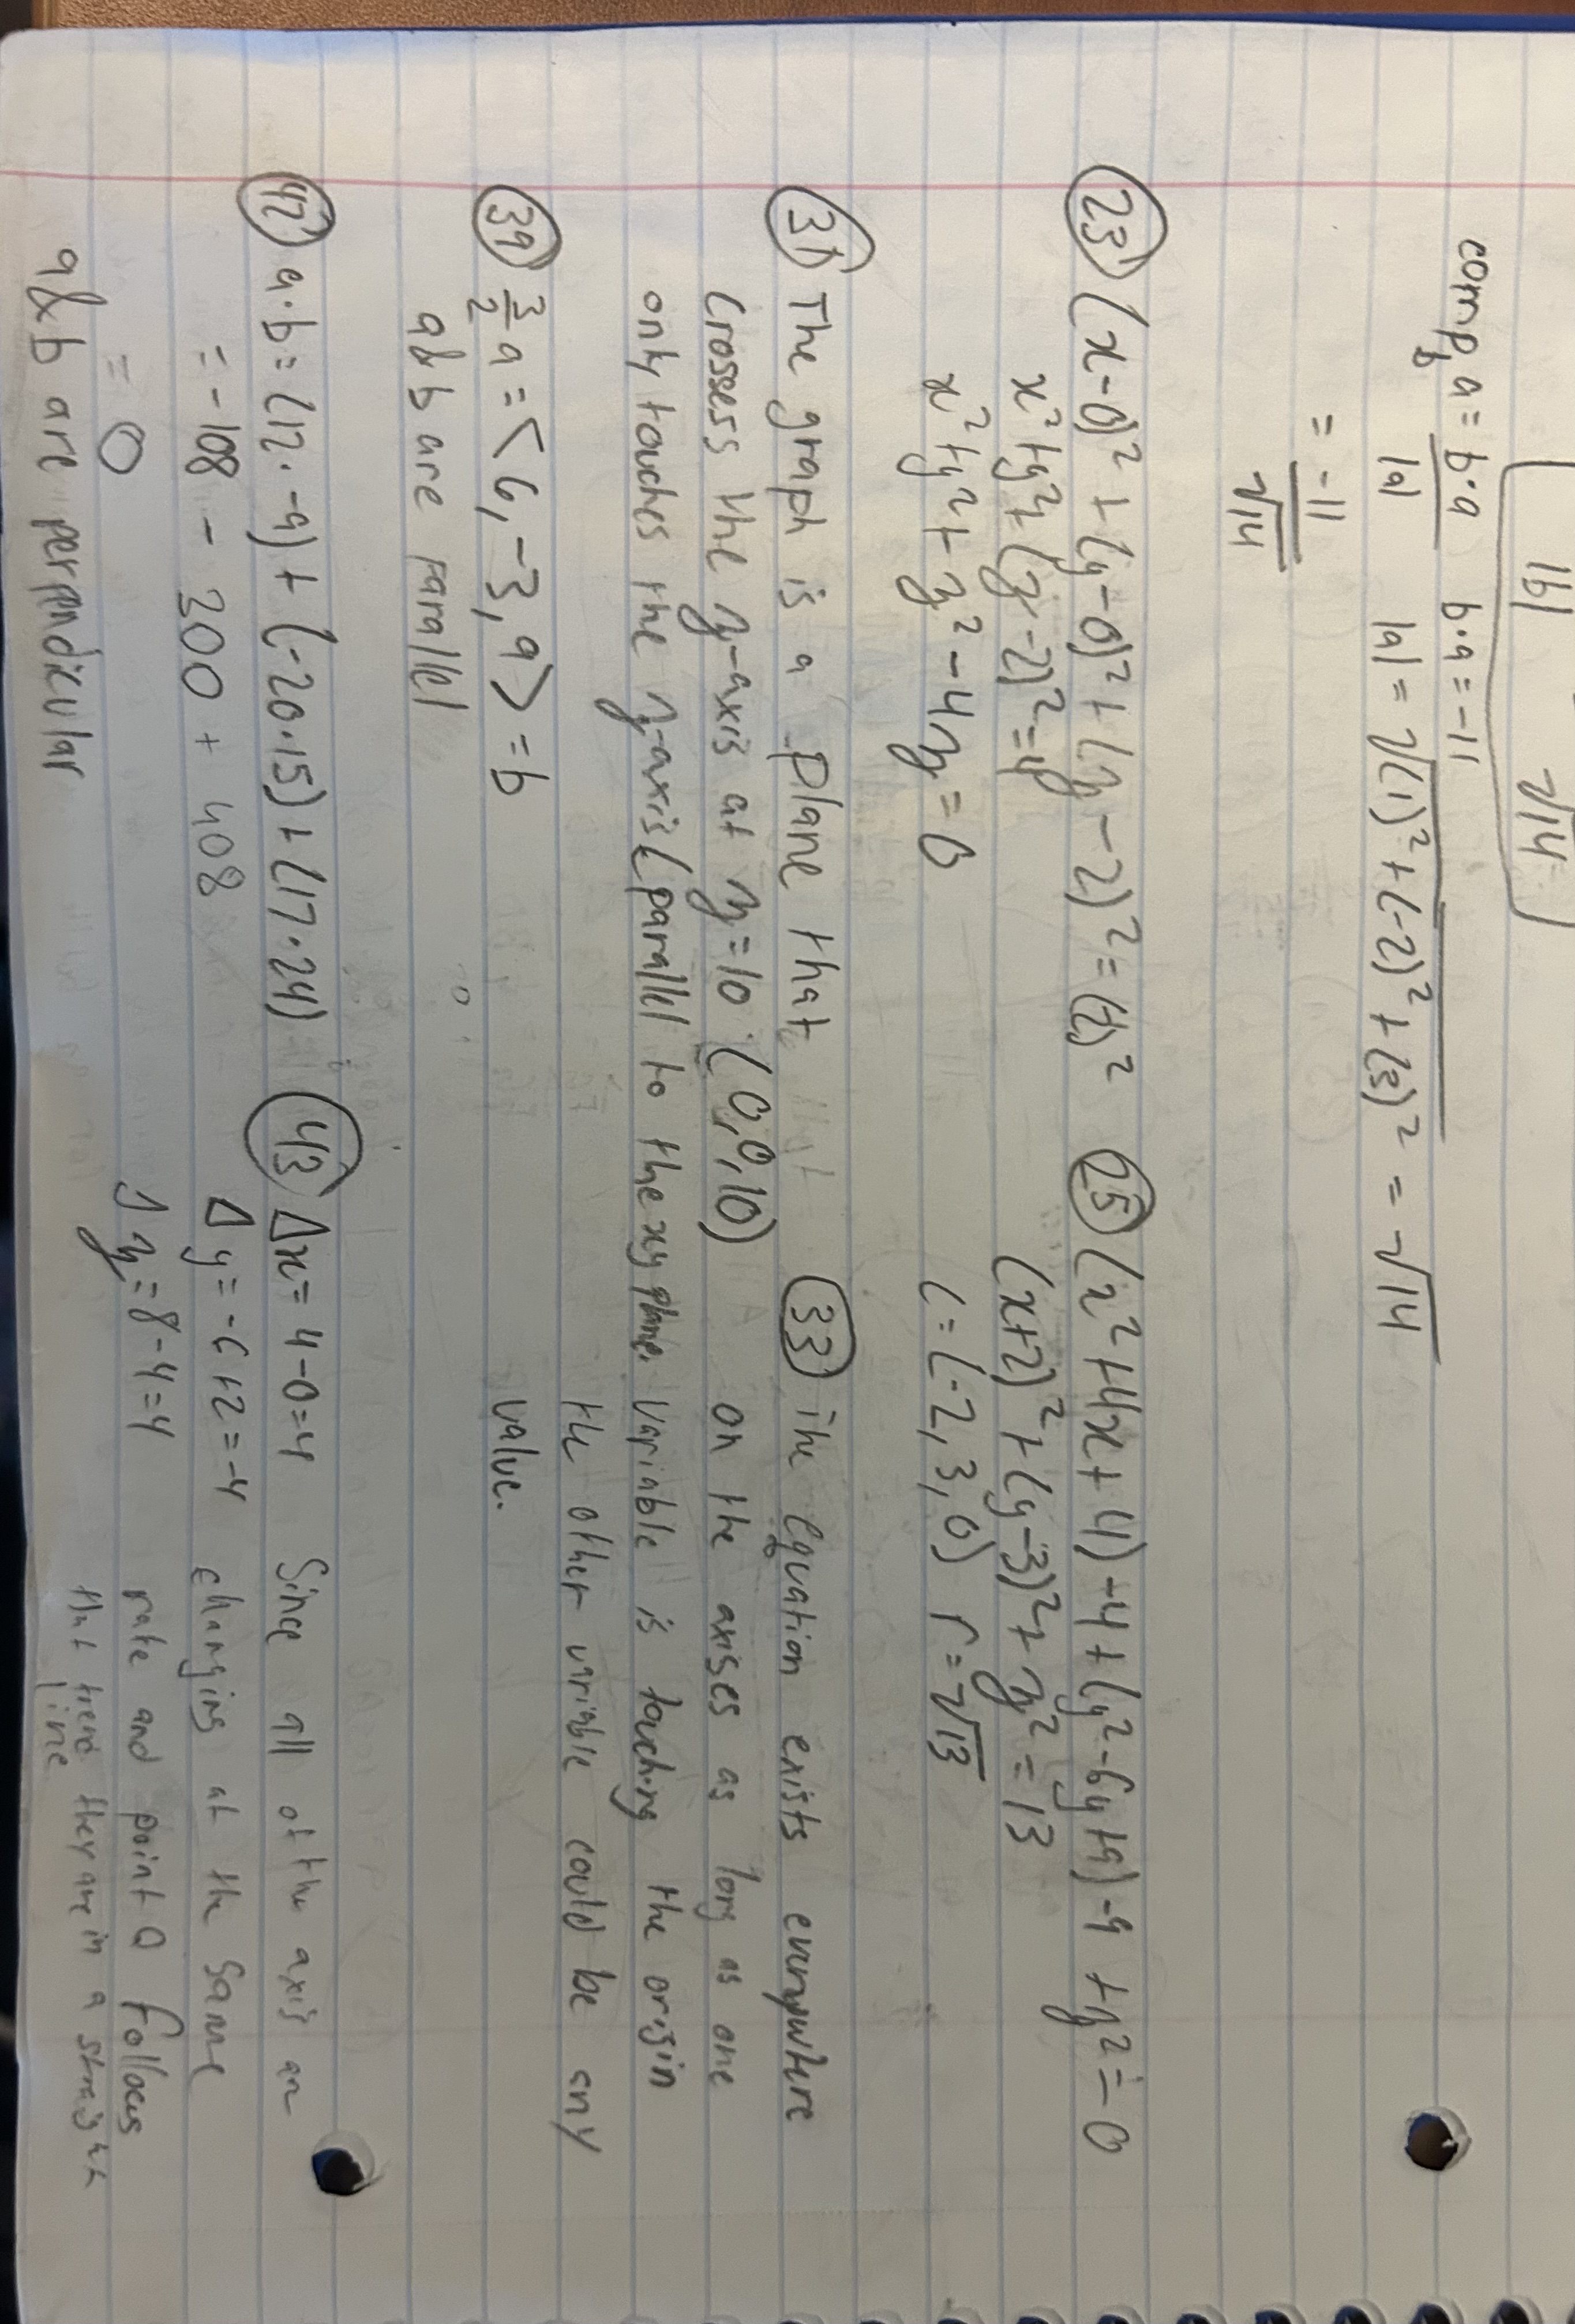 |b| √14
comp_b a = b·a / |a| b·a = -11
|a| = √((1)² + (-2)² + (3)²) = √14
= -11 / √14
23) (x-0)² + (y-0)² + (z-2)² = (2)²
x² + y² + (z-2)² = 4
x² + y² + z² - 4z = 0
25) (x² + 4x + 4) - 4 + (y² - 6y + 9) - 9 + z² = 0
(x+2)² + (y-3)² + z² = 13
C = (-2, 3, 0) r = √13
31) The graph is a plane that
Crosses the z-axis at z=10 (0,0,10)
only touches the z-axis (parallel to the xy plane.
33) The equation exists everywhere
on the axises as long as one
variable is touching the origin
the other variable could be any
value.
39) 3/2 a = <6, -3, 9> = b
a & b are parallel
42) a·b = (12·-9) + (-20·15) + (17·24)
= -108 - 300 + 408
= 0
a & b are perpendicular
43) Δx = 4-0=4
Δy = -6+2 = -4
Δz = 8-4=4
Since all of the axis are
changing at the same
rate and point Q follows
that trend they are in a straight
line